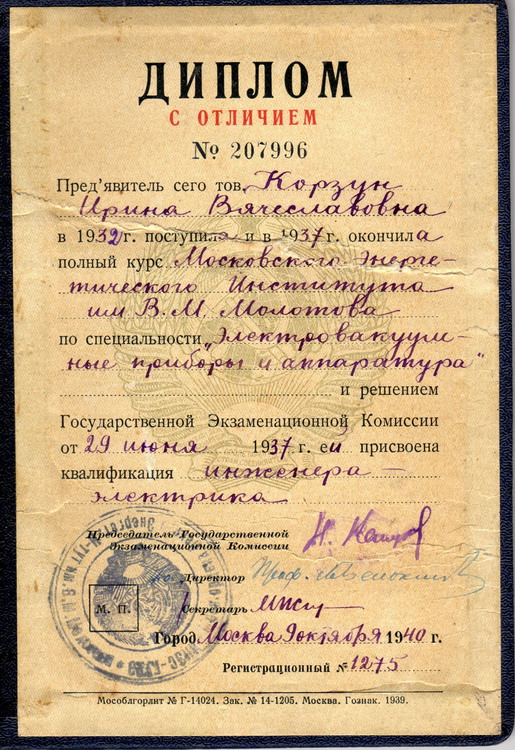 ДИПЛОМ
С ОТЛИЧИЕМ
№ 207996
Пред'явитель сего тов. Корзун
Ирина Вячеславовна
в 1932г. поступила и в 1937г. окончила
полный курс Московского Энерге-
тического Института
им В. М. Молотова
по специальности „Электровакуум-
ные приборы и аппаратура"
и решением
Государственной Экзаменационной Комиссии
от 29 июня 1937 г. ей присвоена
квалификация инженера-
электрика
Председатель Государственной
Экзаменационной Комиссии
Директор Проф.
М. П.
Секретарь
Город Москва 9 октября 1940 г.
Регистрационный № 1275
Мособлгорлит № Г-14024. Зак. № 14-1205. Москва. Гознак. 1939.